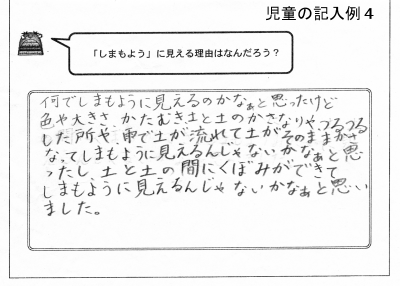 児童の記入例４
「しまもよう」に見える理由はなんだろう？
何でしまもように見えるのかなぁと思ったけど
色や大きさ、かたむき、土と土のかさなりや、つるつる
した所や、雨で土が流れて土がそのまま、かさ
なってしまもように見えるんじゃないかなぁと思
ったし、土と土の間にくぼみができて
しまもように見えるんじゃないかなぁと思い
ました。